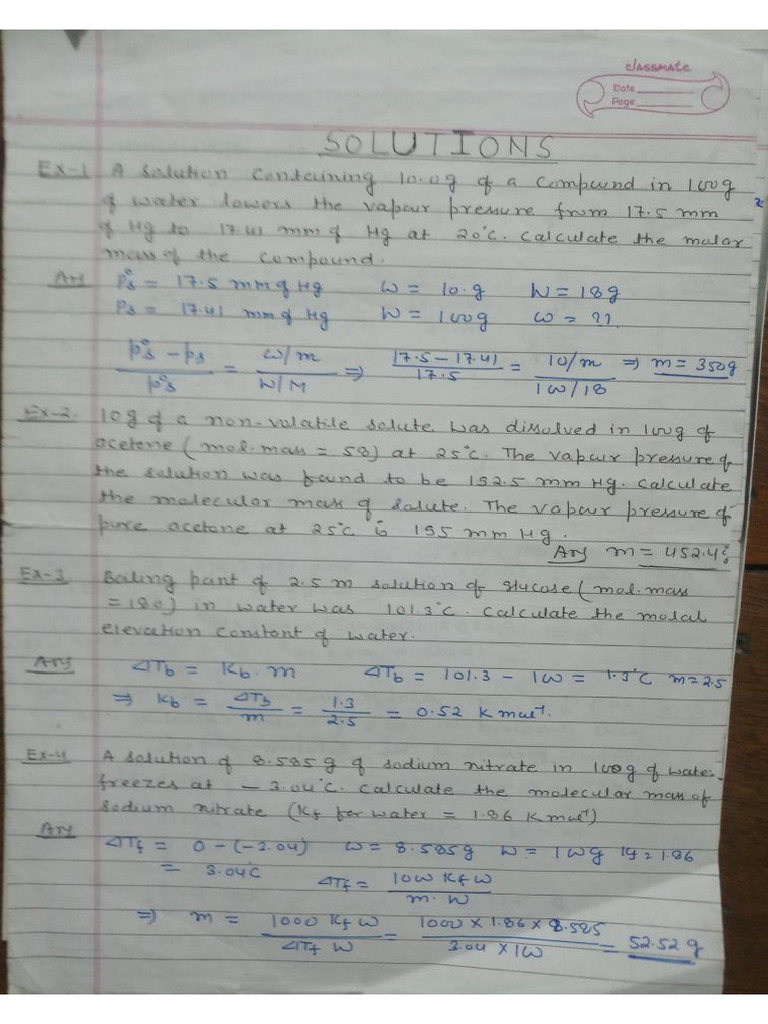 classmate
Date
Page
SOLUTIONS
Ex-1 A solution containing 10.0g of a compound in 100g
of water lowers the vapour pressure from 17.5 mm
of Hg to 17.41 mm of Hg at 20°C. Calculate the molar
mass of the compound.
Ans P°s = 17.5 mm of Hg W = 10.g W = 18g
Ps = 17.41 mm of Hg W = 100g W = ??
P°s - Ps / P°s = W/m / W/M ⇒ 17.5-17.41 / 17.5 = 10/m / 100/18 ⇒ m = 350g
Ex-2. 10g of a non-volatile solute. was dissolved in 100g of
acetone (mol. mass = 58) at 25°C. The vapour pressure of
the solution was found to be 192.5 mm Hg. Calculate
the molecular mass of solute. The vapour pressure of
pure acetone at 25°C is 195 mm Hg.
Ans m = 452.4
Ex-3 Boiling point of 2.5 m solution of glucose (mol. mass
= 180) in water was 101.3°C. Calculate the molal
elevation constant of water.
Ans ΔTb = Kb. m ΔTb = 101.3 - 100 = 1.3°C m = 2.5
⇒ Kb = ΔTb / m = 1.3 / 2.5 = 0.52 K mol⁻¹.
Ex-4 A solution of 8.585g of sodium nitrate in 100g of water
freezes at -3.04°C. Calculate the molecular mass of
sodium nitrate (Kf for water = 1.86 K mol⁻¹)
Ans ΔTf = 0-(-3.04) W = 8.585g W = 100g Kf = 1.86
= 3.04C ΔTf = 1000 Kf W / m. W
⇒ m = 1000 Kf W / ΔTf W = 1000 × 1.86 × 8.585 / 3.04 × 100 = 52.52 g